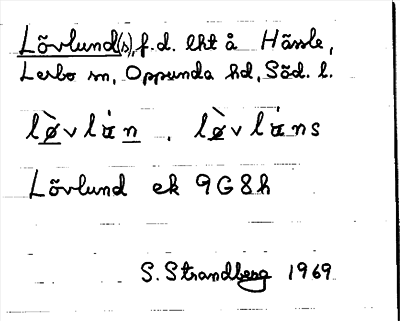 Lövlund(s), f.d. lht å Hässle,
Lerbo sn, Oppunda hd, Söd. l.
lø̀vlán . lø̀vláns
Lövlund ek 9G8h
S. Strandberg 1969